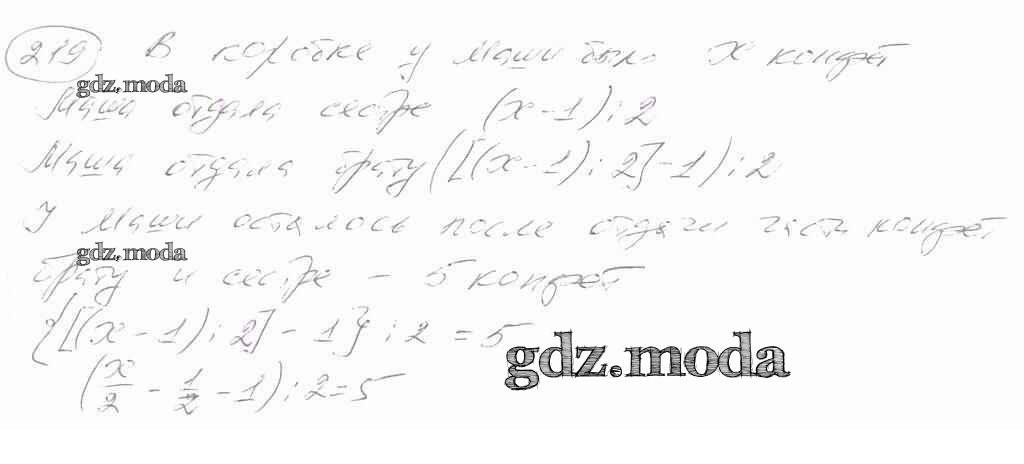 219 В коробке у Маши было x конфет
gdz.moda
Маша отдала сестре (x - 1) : 2
Маша отдала брату ([(x - 1) : 2] - 1) : 2
У Маши осталось после отдачи части конфет
gdz.moda
брату и сестре - 5 конфет
{[(x - 1) : 2] - 1} : 2 = 5
gdz.moda
(x/2 - 1/2 - 1) : 2 = 5